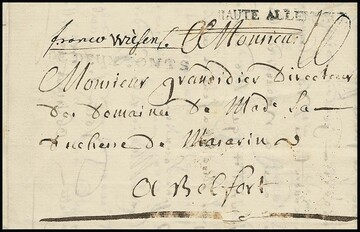 HAUTE ALLEM
franco Wiesens. A Monsieur
Monsieur grandidier Directeur
des domaines de Made La
duchesse de Masarin
A Belfort